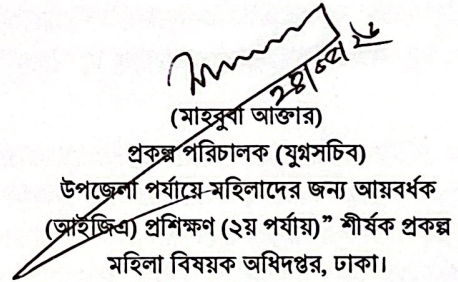 (মাহবুবা আক্তার)
প্রকল্প পরিচালক (যুগ্মসচিব)
উপজেলা পর্যায়ে মহিলাদের জন্য আয়বর্ধক
(আইজিএ) প্রশিক্ষণ (২য় পর্যায়)” শীর্ষক প্রকল্প
মহিলা বিষয়ক অধিদপ্তর, ঢাকা।